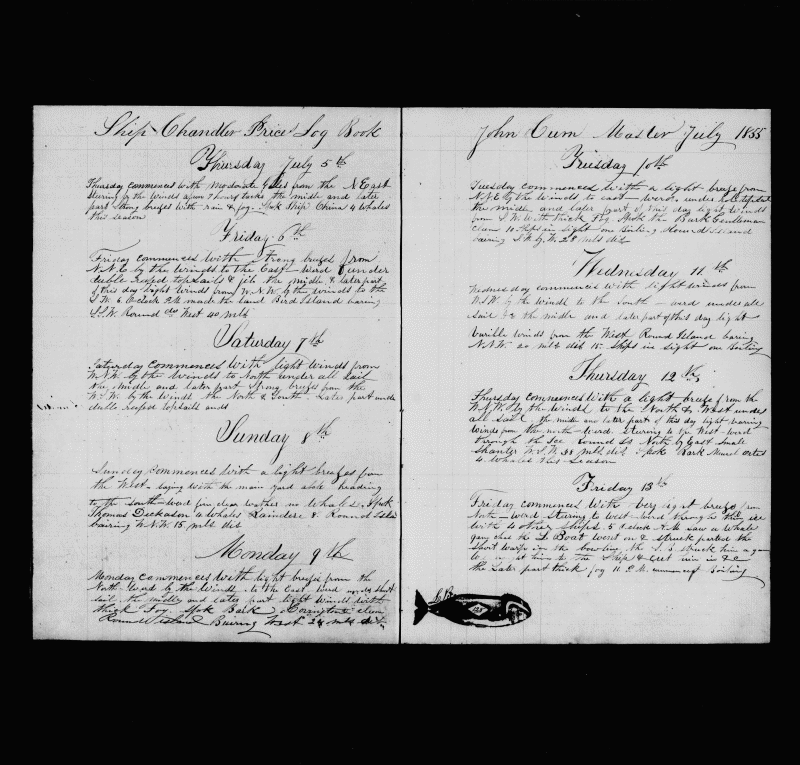 Ship Chandler Price' Log Book
Thursday July 5th
Thursday commences with Moderate Gales from the N East
Stering by the winds upon Short tacks the midle and later
part Strong breezes with rain & fog. Spok Ship China 4 whales
this season
Friday 6th
Friday commences with Strong breezes from
N.N.E by the winds to the East-Werd under
duble reefed topsails & jib the midle & later part
of this day light winds from W.N.W by the winds to the
S.W. 6 Oclock P.M made the land Bird Island baring
S.S.W Round do West 40 mls
Saturday 7th
Saturday commences with light winds from
W.N.W by the winds to North under all sail
the midle and later part Strong breezes from the
W.S.W. by the winds the North & South Later part under
duble reefed topsails ends
Sunday 8th
Sunday commences with a light breezes from
the West- laying with the main yard aback heading
to the South-werd fine clear wather no whales, Spok
Thomas Dickason 2 whales & Raindere 8. Round Island
bairing W.N.W. 15. mls. dis
Monday 9th
Monday commences with light breezes from the
North-werd by the winds to the East werd under short
sail, the midle and later part light winds with
thick Fog Spok Bark Covington clean
Round Island Bairing West 24 mls dis
John Curn Master July 1855
Tuesday 10th
Tuesday commences with a light breeze from
N.N.E by the winds to east-werd under
the midle and later part of this day light winds
from S.W. with thick Fog Spok the Bark Gentleman
clean 10 Ships in sight one Boiling Round Island
bairing S.W by W. 28 mls dis
Wednesday 11th
Wednesday commences with light winds from
W.S.W by the winds to the South-werd under all
sail & the midle and later part of this day light
barible winds from the West Round Island baring
N.N.W. 20 mls dis 15 Ships in sight one Boiling
Thursday 12th
Thursday commences with a light breeze from the
W.N.W by the winds to the North & West under
all sail the midle and later part of this day light bairing
winds from the north-werd. Stering to the West-werd
through the Ice Round Is North by East Small
W.S.W. 38 mls dis Spok Bark
4. whales this Season
Friday 13th
Friday commences with very light breeze from
North-werd Stering to West-werd through thin ice
with 4 other Ships. 5 Oclock A.M saw a whale
gave chas the L. Boat went on & struck parted the
Short warp in the bow the L. B struck him again
to the Ship & cut him in &c
the Later part thick fog 11 P.M. Boiling